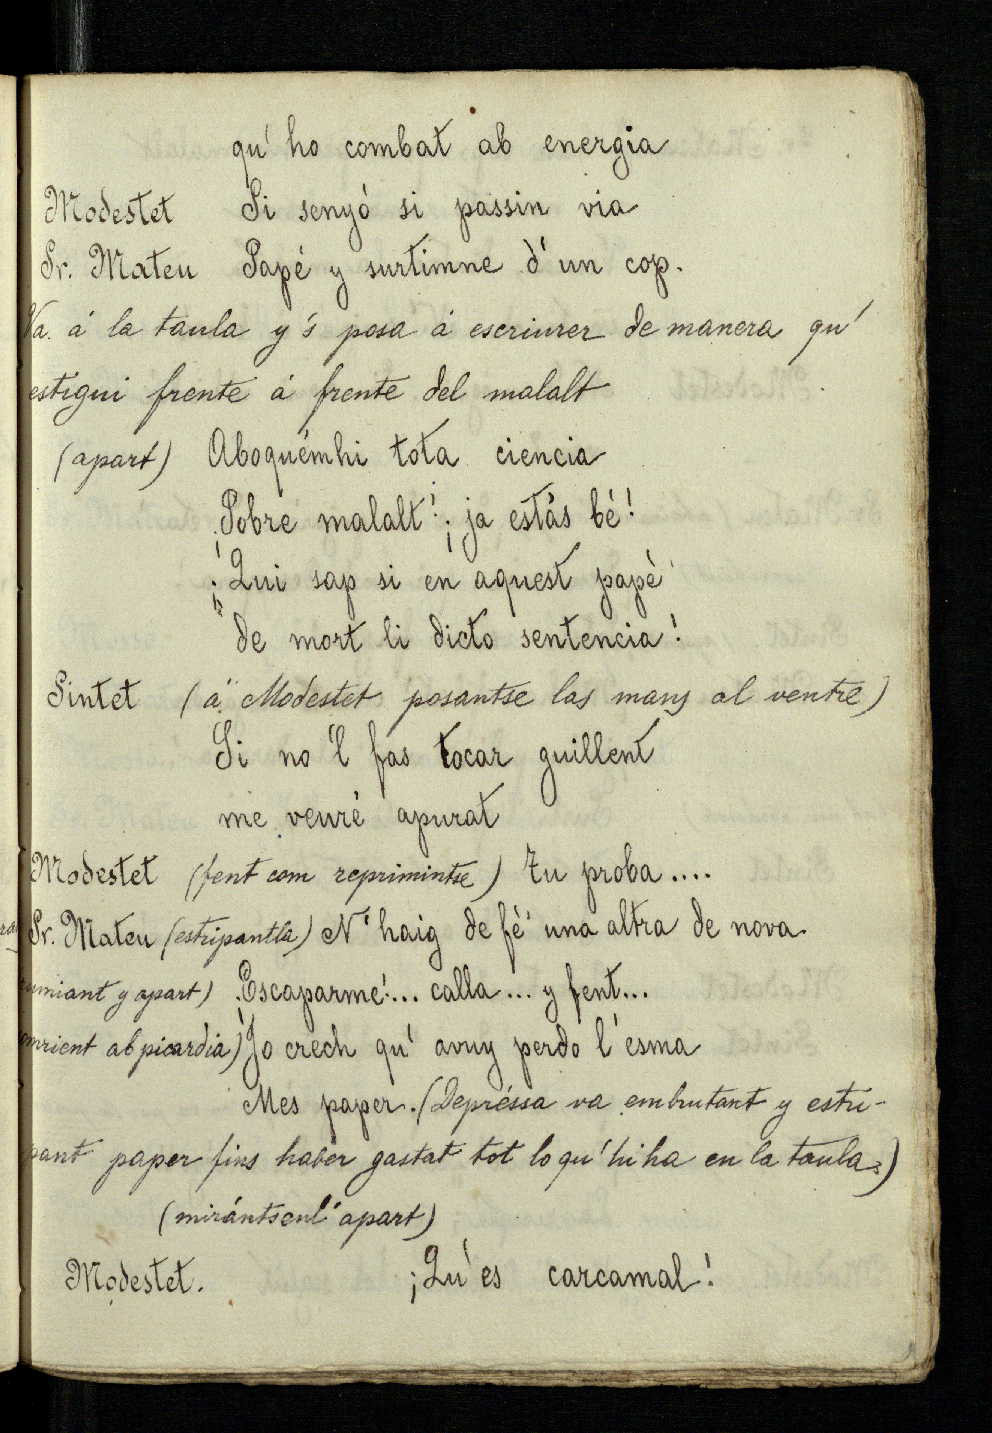 qu' ho combat ab energia
Modestet Si senyó si passin via
Sr. Mateu Papé y surtimne d' un cop.
Va á la taula y 's posa á escriurer de manera qu'
estigui frente á frente del malalt
(apart) Aboquémhi tota ciencia
Pobre malalt! ¡ja estás bé!
¡Qui sap si en aquest papè
de mort li dicto sentencia!
Sintet (á Modestet posantse las mans al ventre)
Si no 'l fas tocar guillent
me veuré apurat
Modestet (fent com reprimintse) Tu proba....
Sr. Mateu (estripantla) N' haig de fé una altra de nova
y apart) Escaparme!... calla... y fent...
ab picardia) Jo crech qu' avuy perdo l' esma
Mes paper. (Depréssa va embrutant y estri-
pant paper fins haber gastat tot lo qu' hi ha en la taula.)
(mirántsenl' apart)
Modestet. ¡Qu' es carcamal!